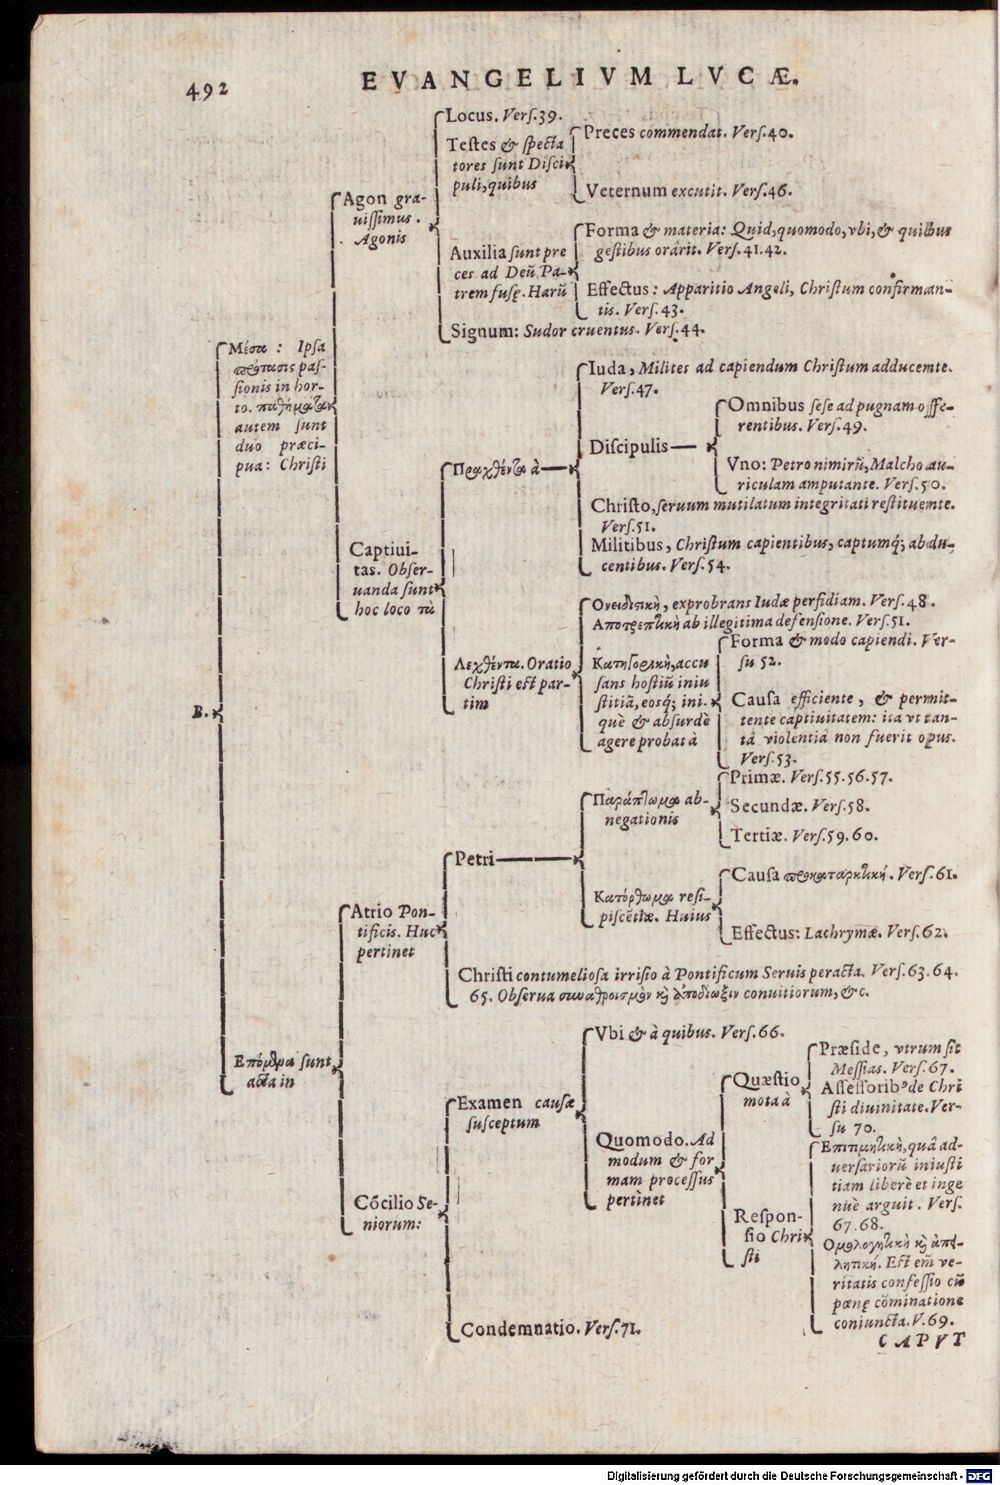 492
EVANGELIVM LVCÆ.
B.
Μέσα : Ipsa
πρότασις pas-
sionis in hor-
to. παθήματα
autem sunt
duo præci-
pua: Christi
Agon gra-
uissimus.
Agonis
Locus. Vers.39.
Testes & specta
tores sunt Disci
puli, quibus
Preces commendat. Vers.40.
Veternum excutit. Vers.46.
Auxilia sunt pre
ces ad Deū Pa-
trem fusę. Harū
Forma & materia: Quid, quomodo, vbi, & quibus
gestibus orârit. Vers.41.42.
Effectus: Apparitio Angeli, Christum confirman-
tis. Vers.43.
Signum: Sudor cruentus. Vers.44.
Captiui-
tas. Obser-
uanda sunt
hoc loco τὰ
Πραχθέντα à
Iuda, Milites ad capiendum Christum adducente.
Vers.47.
Discipulis
Omnibus sese ad pugnam offe-
rentibus. Vers.49.
Vno: Petro nimirū, Malcho au-
riculam amputante. Vers.50.
Christo, seruum mutilatum integritati restituente.
Vers.51.
Militibus, Christum capientibus, captumq́; abdu-
centibus. Vers.54.
Λεχθέντα. Oratio
Christi est par-
tim
Ονειδιστικὴ, exprobrans Iudæ perfidiam. Vers.48.
Αποτρεπτικὴ ab illegitima defensione. Vers.51.
Κατηγορικὴ, accu
sans hostiū iniu
stitiā, eosq́; ini-
què & absurdè
agere probat à
Forma & modo capiendi. Ver-
su 52.
Causa efficiente, & permit-
tente captiuitatem: ita vt tan-
tâ violentiâ non fuerit opus.
Vers.53.
Επόμενα sunt
acta in
Atrio Pon-
tificis. Huc
pertinet
Petri
Παράπτωμα ab-
negationis
Primæ. Vers.55.56.57.
Secundæ. Vers.58.
Tertiæ. Vers.59.60.
Κατόρθωμα resi-
piscētiæ. Huius
Causa προκαταρκτικὴ. Vers.61.
Effectus: Lachrymæ. Vers.62.
Christi contumeliosa irrisio à Pontificum Seruis peracta. Vers.63.64.
65. Obserua συναθροισμὸν καὶ ἀποδίωξιν conuitiorum, &c.
Cōcilio Se-
niorum:
Examen causæ
susceptum
Vbi & à quibus. Vers.66.
Quomodo. Ad
modum & for
mam processus
pertinet
Quæstio
mota à
Præside, vtrum sit
Messias. Vers.67.
Assessoribꝰ de Chri
sti diuinitate. Ver-
su 70.
Respon-
sio Chri
sti
Επιτιμητικὴ, quâ ad-
uersariorū iniusti
tiam liberè et inge
nuè arguit. Vers.
67.68.
Ομολογητικὴ καὶ ἀπει-
λητικὴ. Est em̄ ve-
ritatis confessio cū
pœnę cōminatione
coniuncta. V.69.
Condemnatio. Vers.71.
CAPVT
Digitalisierung gefördert durch die Deutsche Forschungsgemeinschaft - DFG